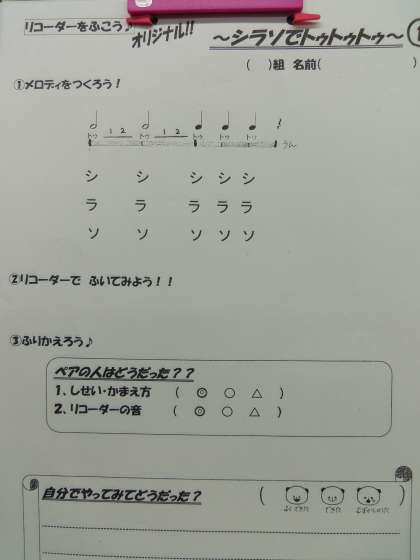 リコーダーをふこう♪
オリジナル!!
～シラソでトゥトゥトゥ～
( )組 名前( )
①メロディをつくろう！
1 2 1 2
トゥ トゥ トゥ トゥ トゥ うん
シ シ シ シ シ
ラ ラ ラ ラ ラ
ソ ソ ソ ソ ソ
②リコーダーで ふいてみよう！！
③ふりかえろう♪
ペアの人はどうだった？？
1、しせい・かまえ方 ( ◎ ○ △ )
2、リコーダーの音 ( ◎ ○ △ )
自分でやってみてどうだった？ ( )
よくできた できた むずかしかった